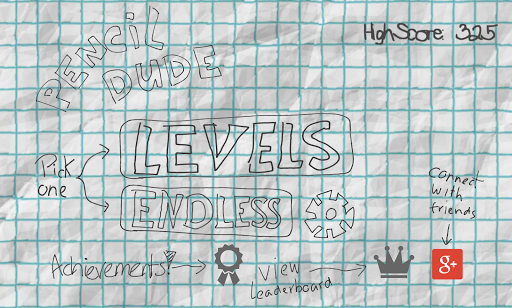 PENCIL
DUDE
HighScore: 325
LEVELS
Pick
one
ENDLESS
Connect
with
friends
Achievements?
View
Leaderboard
g+